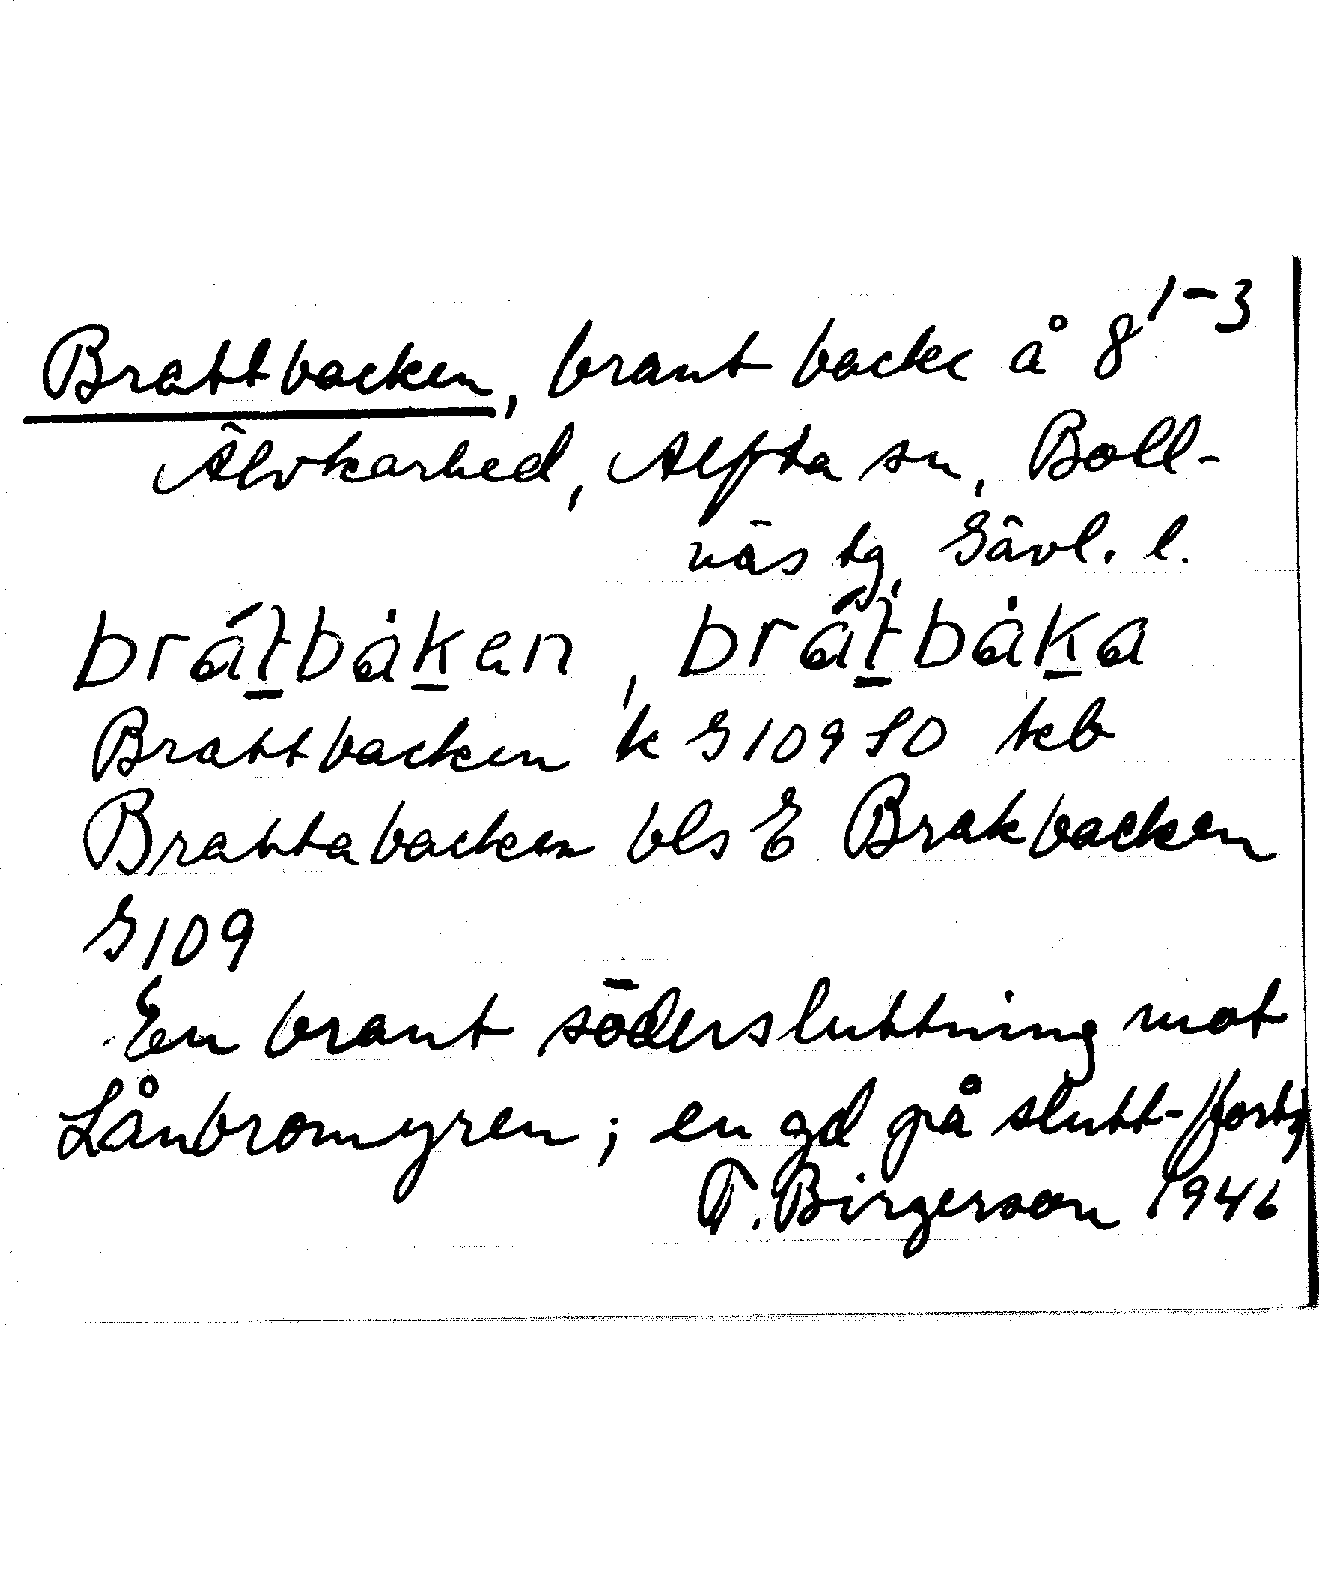 Brattbacken, brant backe å 8 1-3
Älvkarhed, Alfta sn, Boll-
näs tg, Gävl. l.
brátbȧken, brátbȧka
Brattbacken k G109 SO kb
Brattabacken bls E Brakbacken
G109
En brant södersluttning mot
Lånbromyren; en gd på slutt- /forts
T. Birgerson 1946